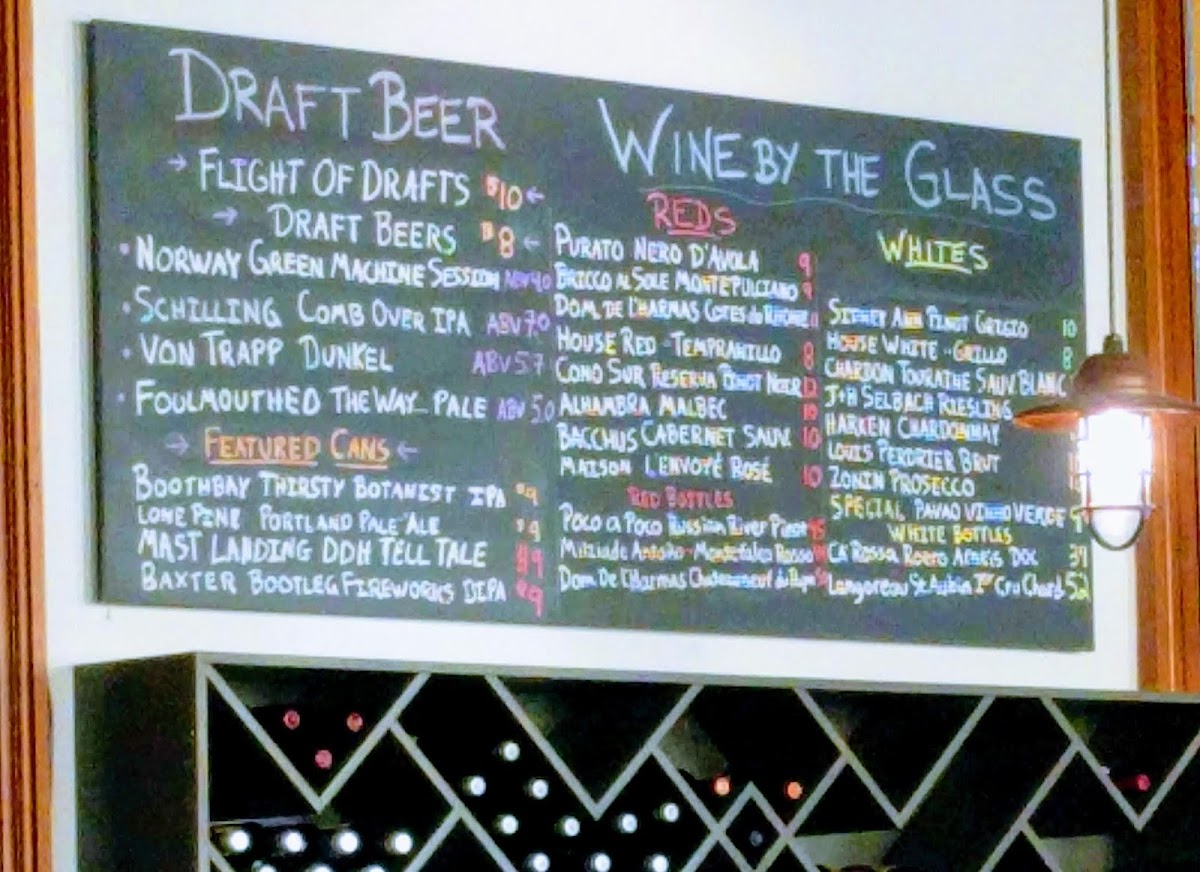 DRAFT BEER
→ FLIGHT OF DRAFTS $10 ←
→ DRAFT BEERS $8 ←
• NORWAY GREEN MACHINE SESSION ABV 4.0
• SCHILLING COMB OVER IPA ABV 7.0
• VON TRAPP DUNKEL ABV 5.7
• FOULMOUTHED THE WAY PALE ABV 5.0
→ FEATURED CANS ←
BOOTHBAY THIRSTY BOTANIST IPA $9
LONE PINE PORTLAND PALE ALE $9
MAST LANDING DDH TELL TALE $9
BAXTER BOOTLEG FIREWORKS DIPA $9
WINE BY THE GLASS
REDS
PURATO NERO D'AVOLA 9
BRICCO AL SOLE MONTEPULCIANO 9
DOM. DE L'HARMAS COTES du RHONE
HOUSE RED - TEMPRANILLO 8
CONO SUR RESERVA PINOT NOIR
ALHAMBRA MALBEC 10
BACCHUS CABERNET SAUV. 10
MAISON L'ENVOYÉ ROSÉ 10
RED BOTTLES
POCO A POCO Russian River Pinot
Montefalco Rosso
Dom De L'Harmas Chateauneuf du Pape
WHITES
SIDNEY ANN PINOT GRIGIO 10
HOUSE WHITE - GRILLO 8
CHARDON TOURAINE SAUV. BLANC
J+H SELBACH RIESLING
HARKEN CHARDONNAY
LOUIS PERDRIER BRUT
ZONIN PROSECCO
SPECIAL PAVAO VINHO VERDE
WHITE BOTTLES
CA' ROSSA ROERO ARNEIS DOC
Langoreau St. Aubin 1er Cru Chard. 52